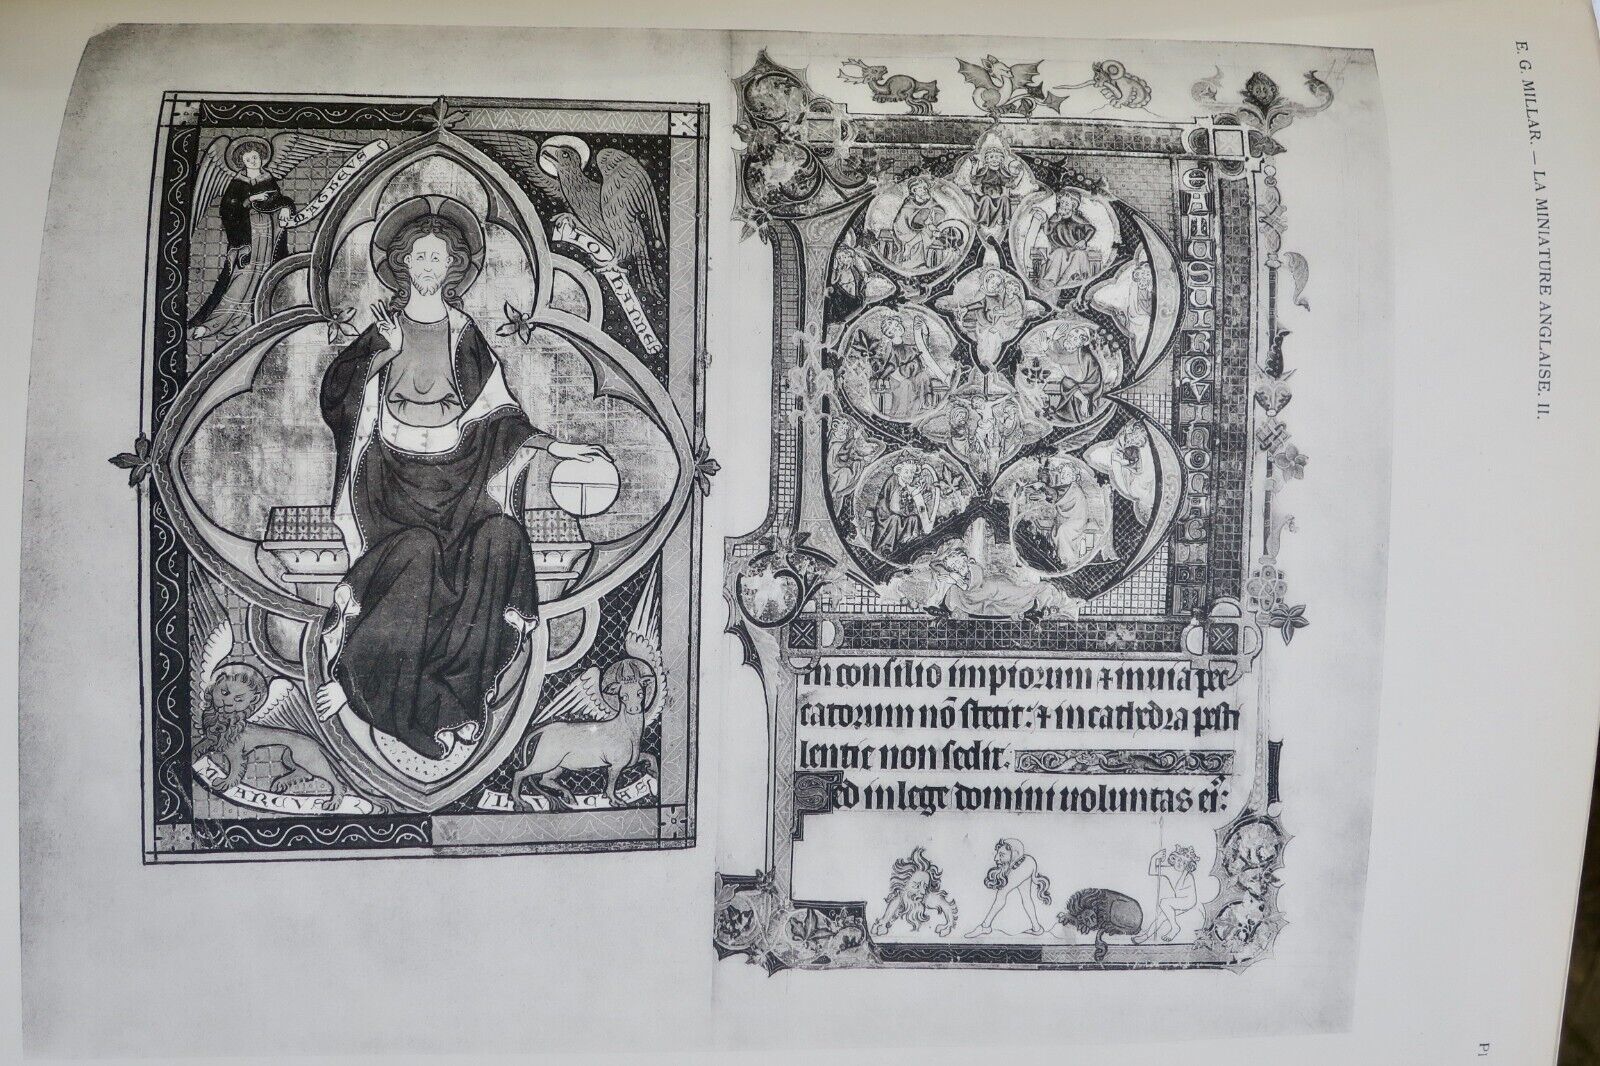 E. G. MILLAR. — LA MINIATURE ANGLAISE. II.
MATHEUS
IOHANNES
MARCUS
LUCAS
EATUS UIR QVI NON ABII
in consilio impiorum ⁊ in uia pec
catorum nō stetit: ⁊ in cathedra pesti
lentie non sedit.
Sed in lege domini uoluntas eiꝰ:
Pl